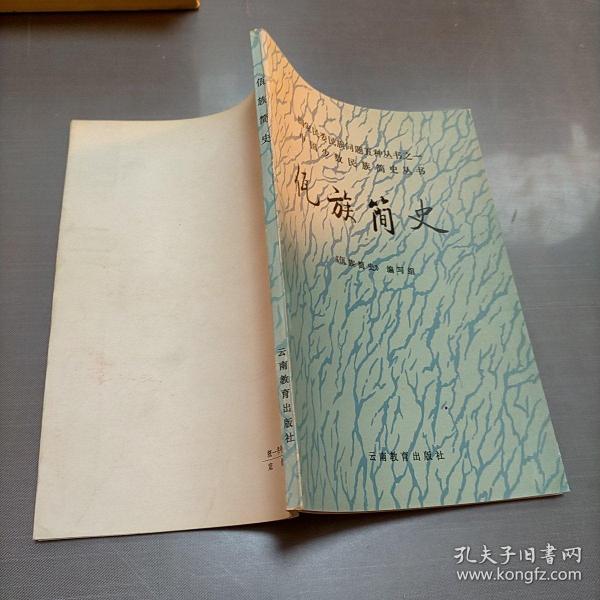 佤族简史
云南教育出版社
民委民族问题五种丛书之一
国少数民族简史丛书
佤族简史
《佤族简史》编写组
云南教育出版社
孔夫子旧书网
www.kongfz.com